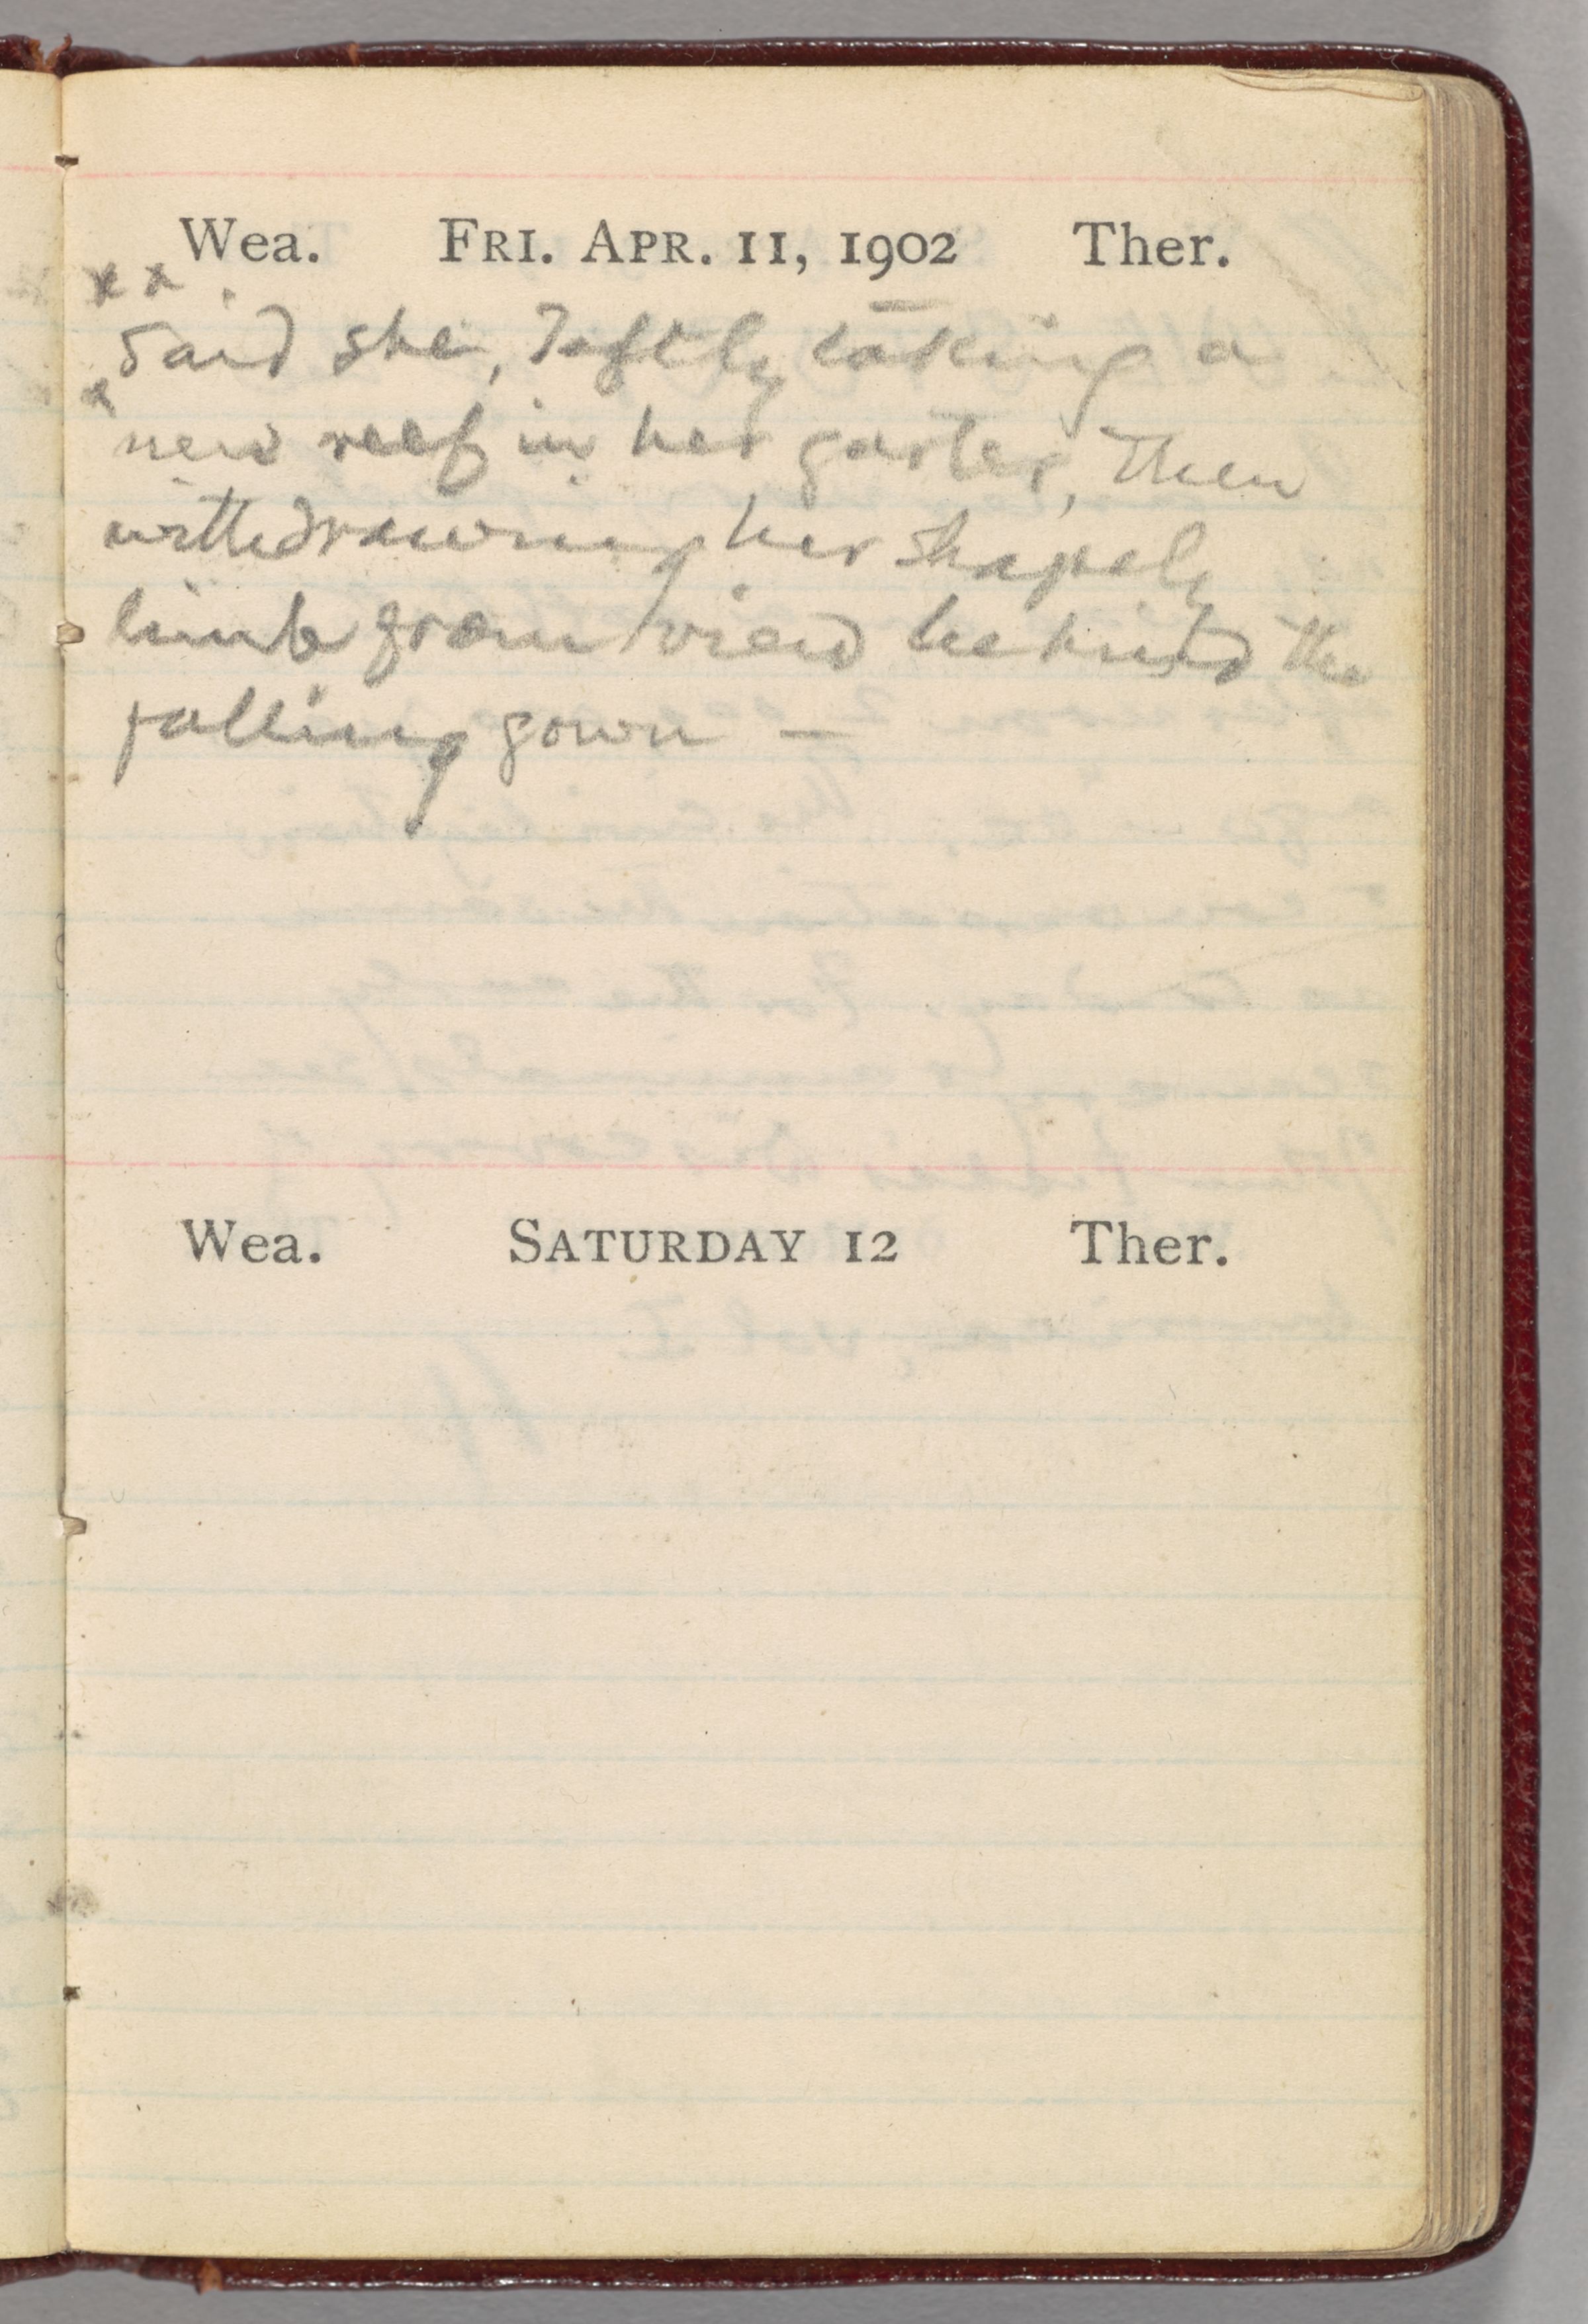 Wea. FRI. APR. 11, 1902 Ther.
x x
Said she, deftly taking a
x
new reef in her garter, then
withdrawing her shapely
limb from view behind the
falling gown —
Wea. SATURDAY 12 Ther.